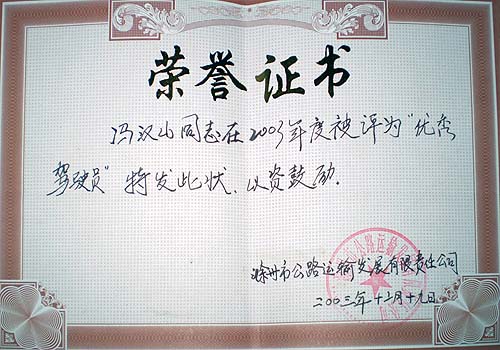 荣誉证书
冯汉山同志在2003年度被评为"优秀
驾驶员"特发此状,以资鼓励.
滁州市公路运输发展有限责任公司
二00三年十二月十九日